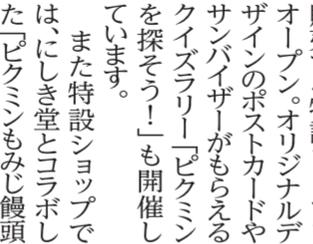 オープン。オリジナルデ
ザインのポストカードや
サンバイザーがもらえる
クイズラリー「ピクミン
を探そう!」も開催し
ています。
また特設ショップで
は、にしき堂とコラボし
た「ピクミンもみじ饅頭